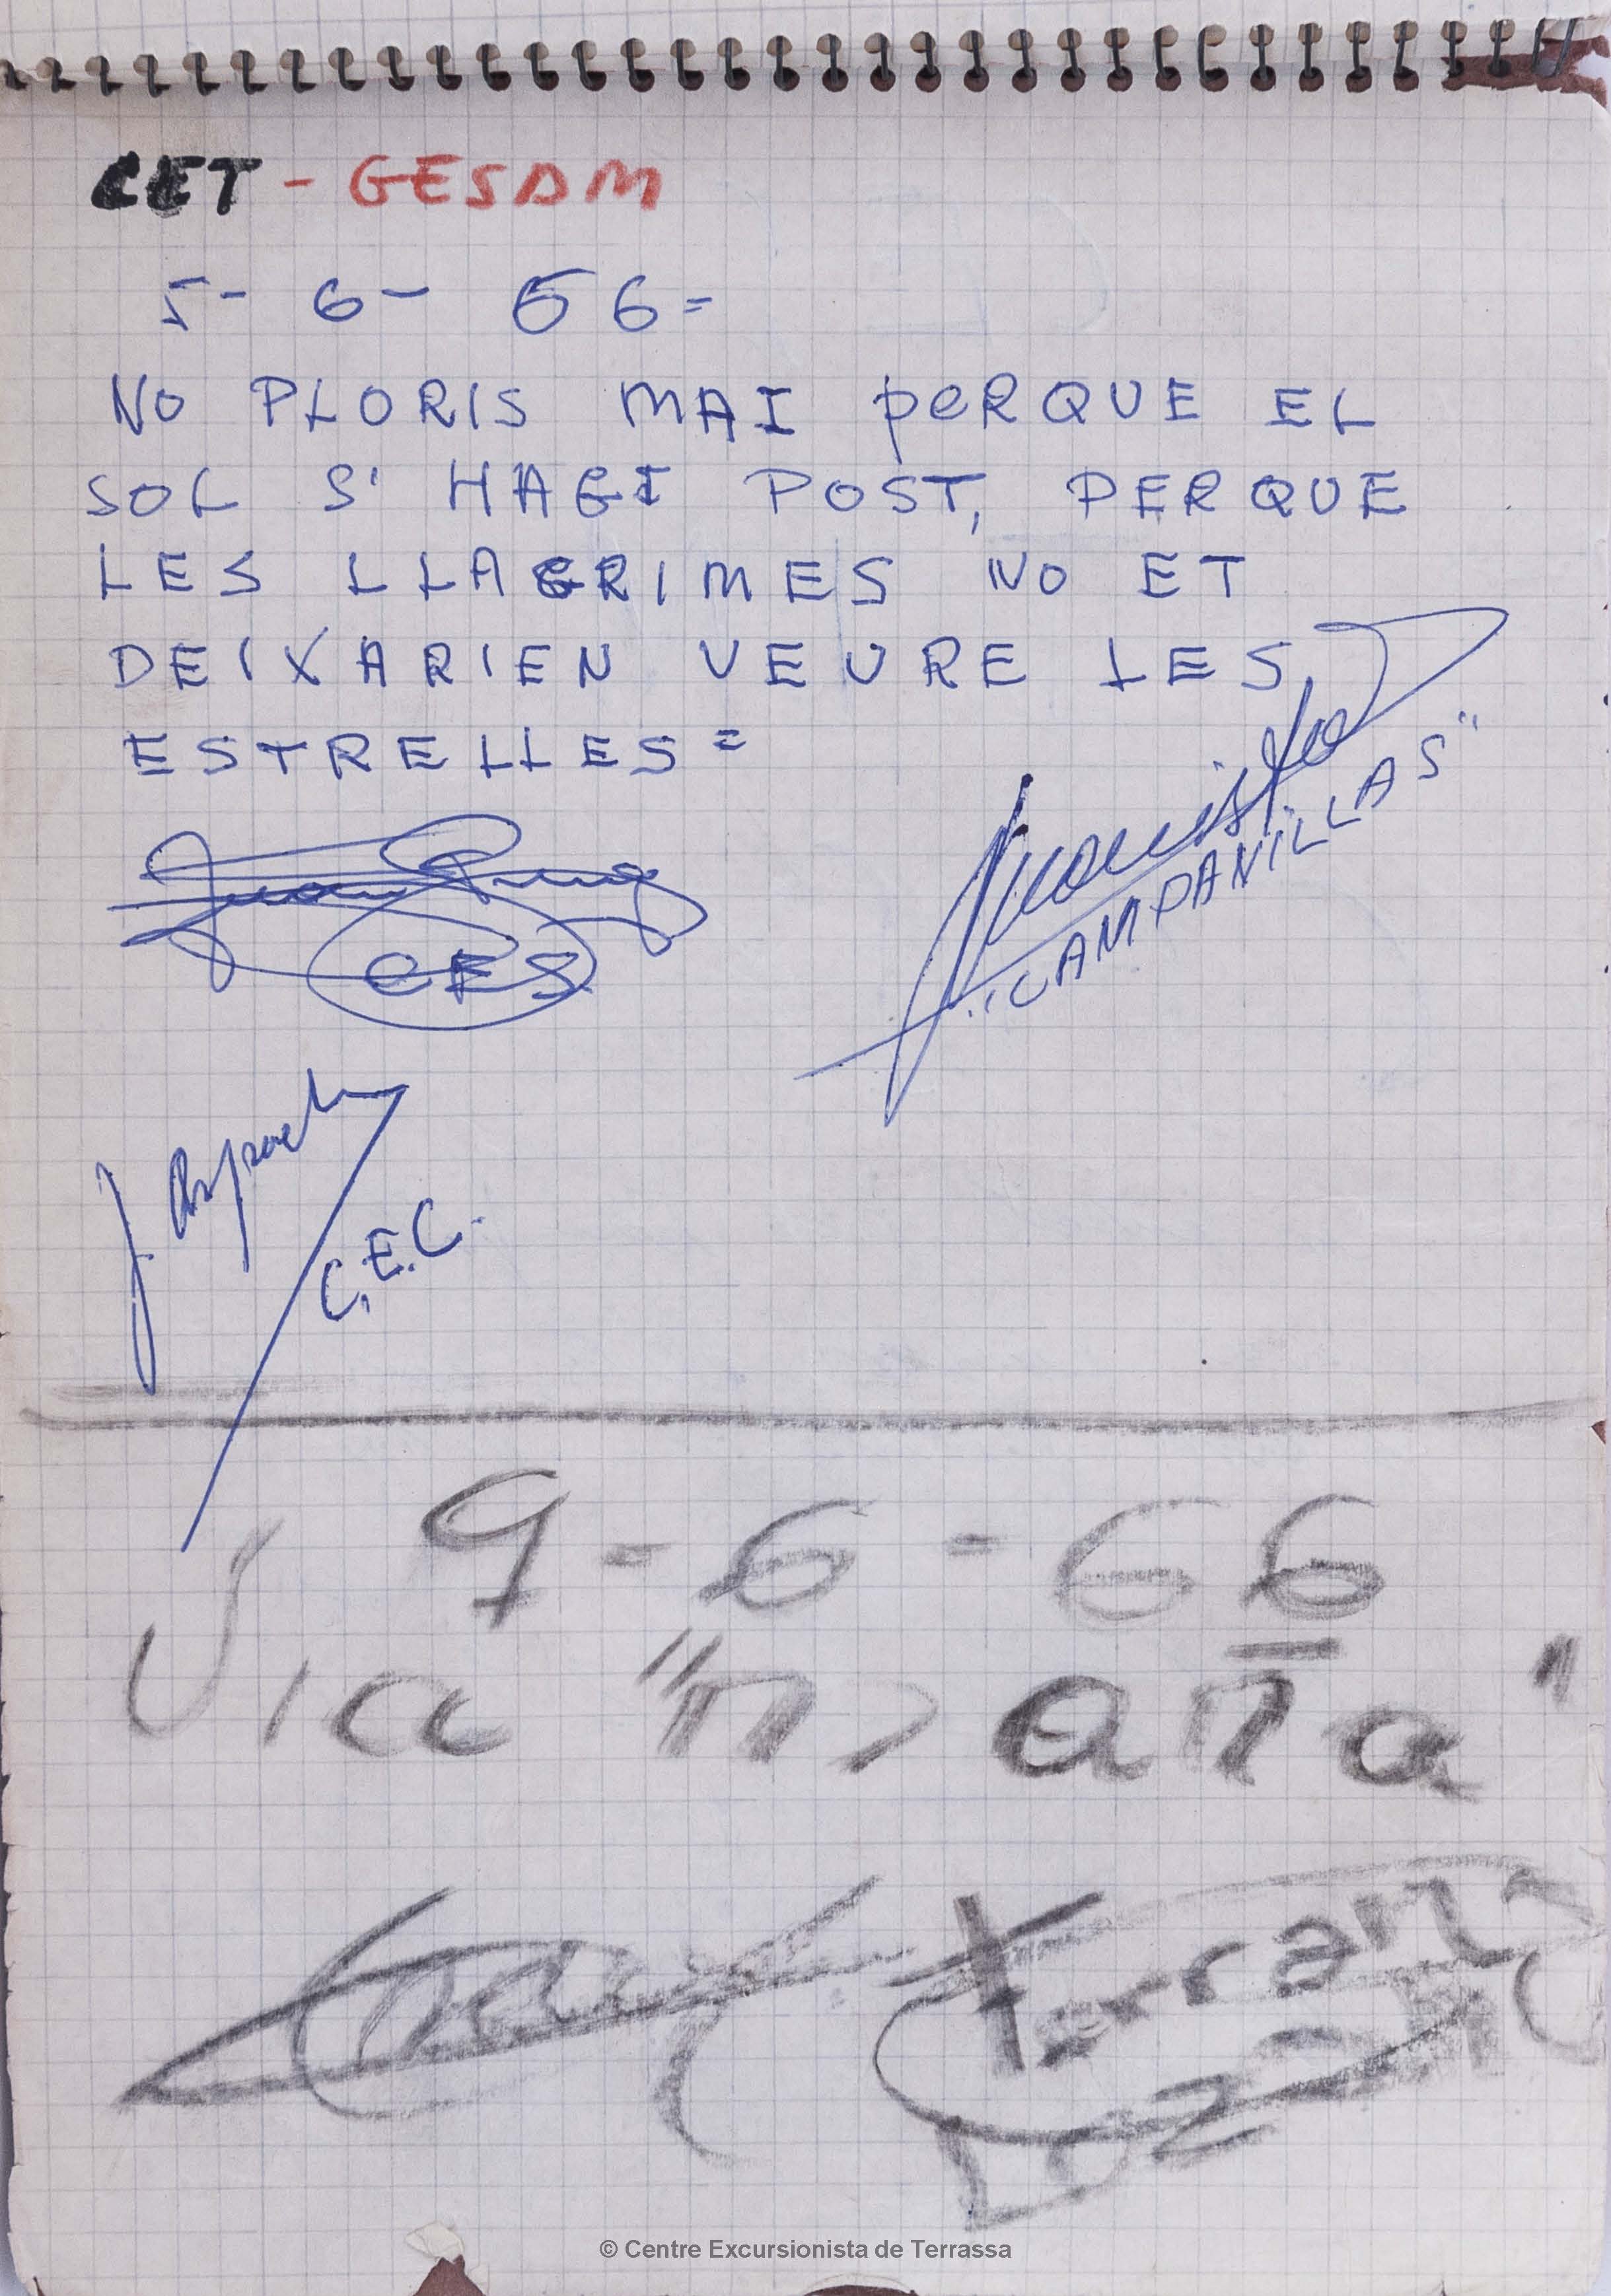 CET - GESDM
5 - 6 - 66 =
NO PLORIS MAI perQUE EL
SOL S' HAGI POST, PERQUE
LES LLAGRIMES NO ET
DEIXARIEN VEURE LES
ESTRELLES =
"CAMPANILLAS"
Juan Puig
CES
C.E.C.
9 - 6 - 66
Via
© Centre Excursionista de Terrassa